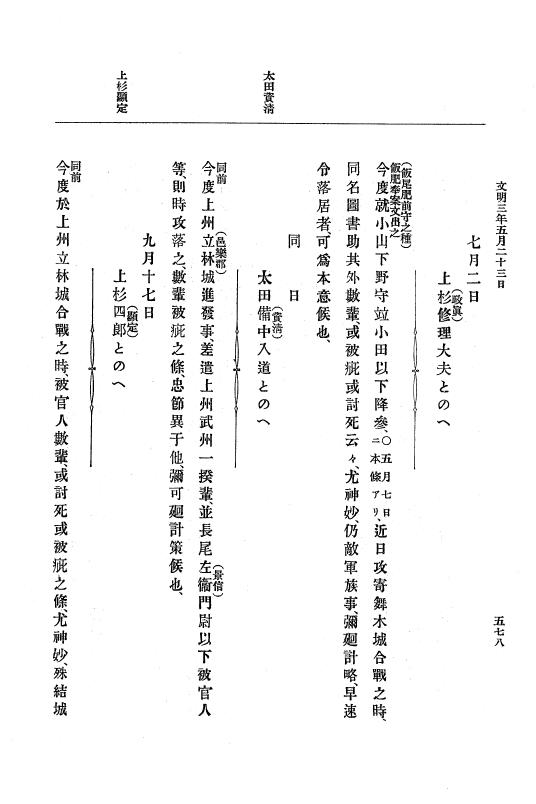 文明三年五月二十三日
五七八
七月二日
上杉修理大夫とのへ
(政眞)
(飯尾肥前守之種)
飯肥奉案文出之
今度就小山下野守竝小田以下降參、〇五月七日ニ本條アリ、近日攻寄舞木城合戰之時、
同名圖書助其外數輩、或被疵或討死云々、尤神妙、仍敵軍族事、彌廻計略、早速
令落居者、可爲本意候也、
同日
太田資淸
太田備中入道とのへ
(資淸)
同前
今度上州立林城進發事、差遣上州武州一揆輩、並長尾左衞門尉以下被官人
(邑樂郡)
(景信)
等、則時攻落之、數輩被疵之條、忠節異于他、彌可廻計策候也、
九月十七日
上杉顯定
上杉四郎とのへ
(顯定)
同前
今度於上州立林城合戰之時、被官人數輩、或討死或被疵之條、尤神妙、殊結城